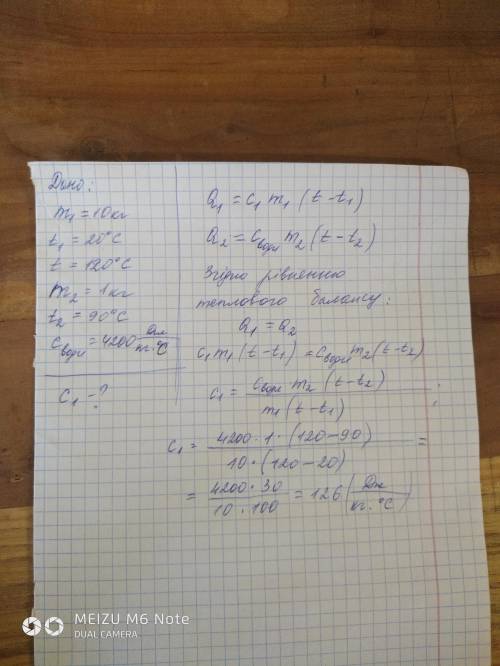 Дано:
m₁ = 10 кг
t₁ = 20°C
t = 120°C
m₂ = 1 кг
t₂ = 90°C
c води = 4200 Дж/кг·°C
C₁ - ?
Q₁ = c₁ m₁ (t - t₁)
Q₂ = c води m₂ (t - t₂)
Згідно рівнянню
теплового балансу:
Q₁ = Q₂
c₁ m₁ (t - t₁) = c води m₂ (t - t₂)
c₁ = c води m₂ (t - t₂) / m₁ (t - t₁) ;
c₁ = 4200 · 1 · (120 - 90) / 10 · (120 - 20) =
= 4200 · 30 / 10 · 100 = 126 (Дж/кг·°C)
MEIZU M6 Note
DUAL CAMERA